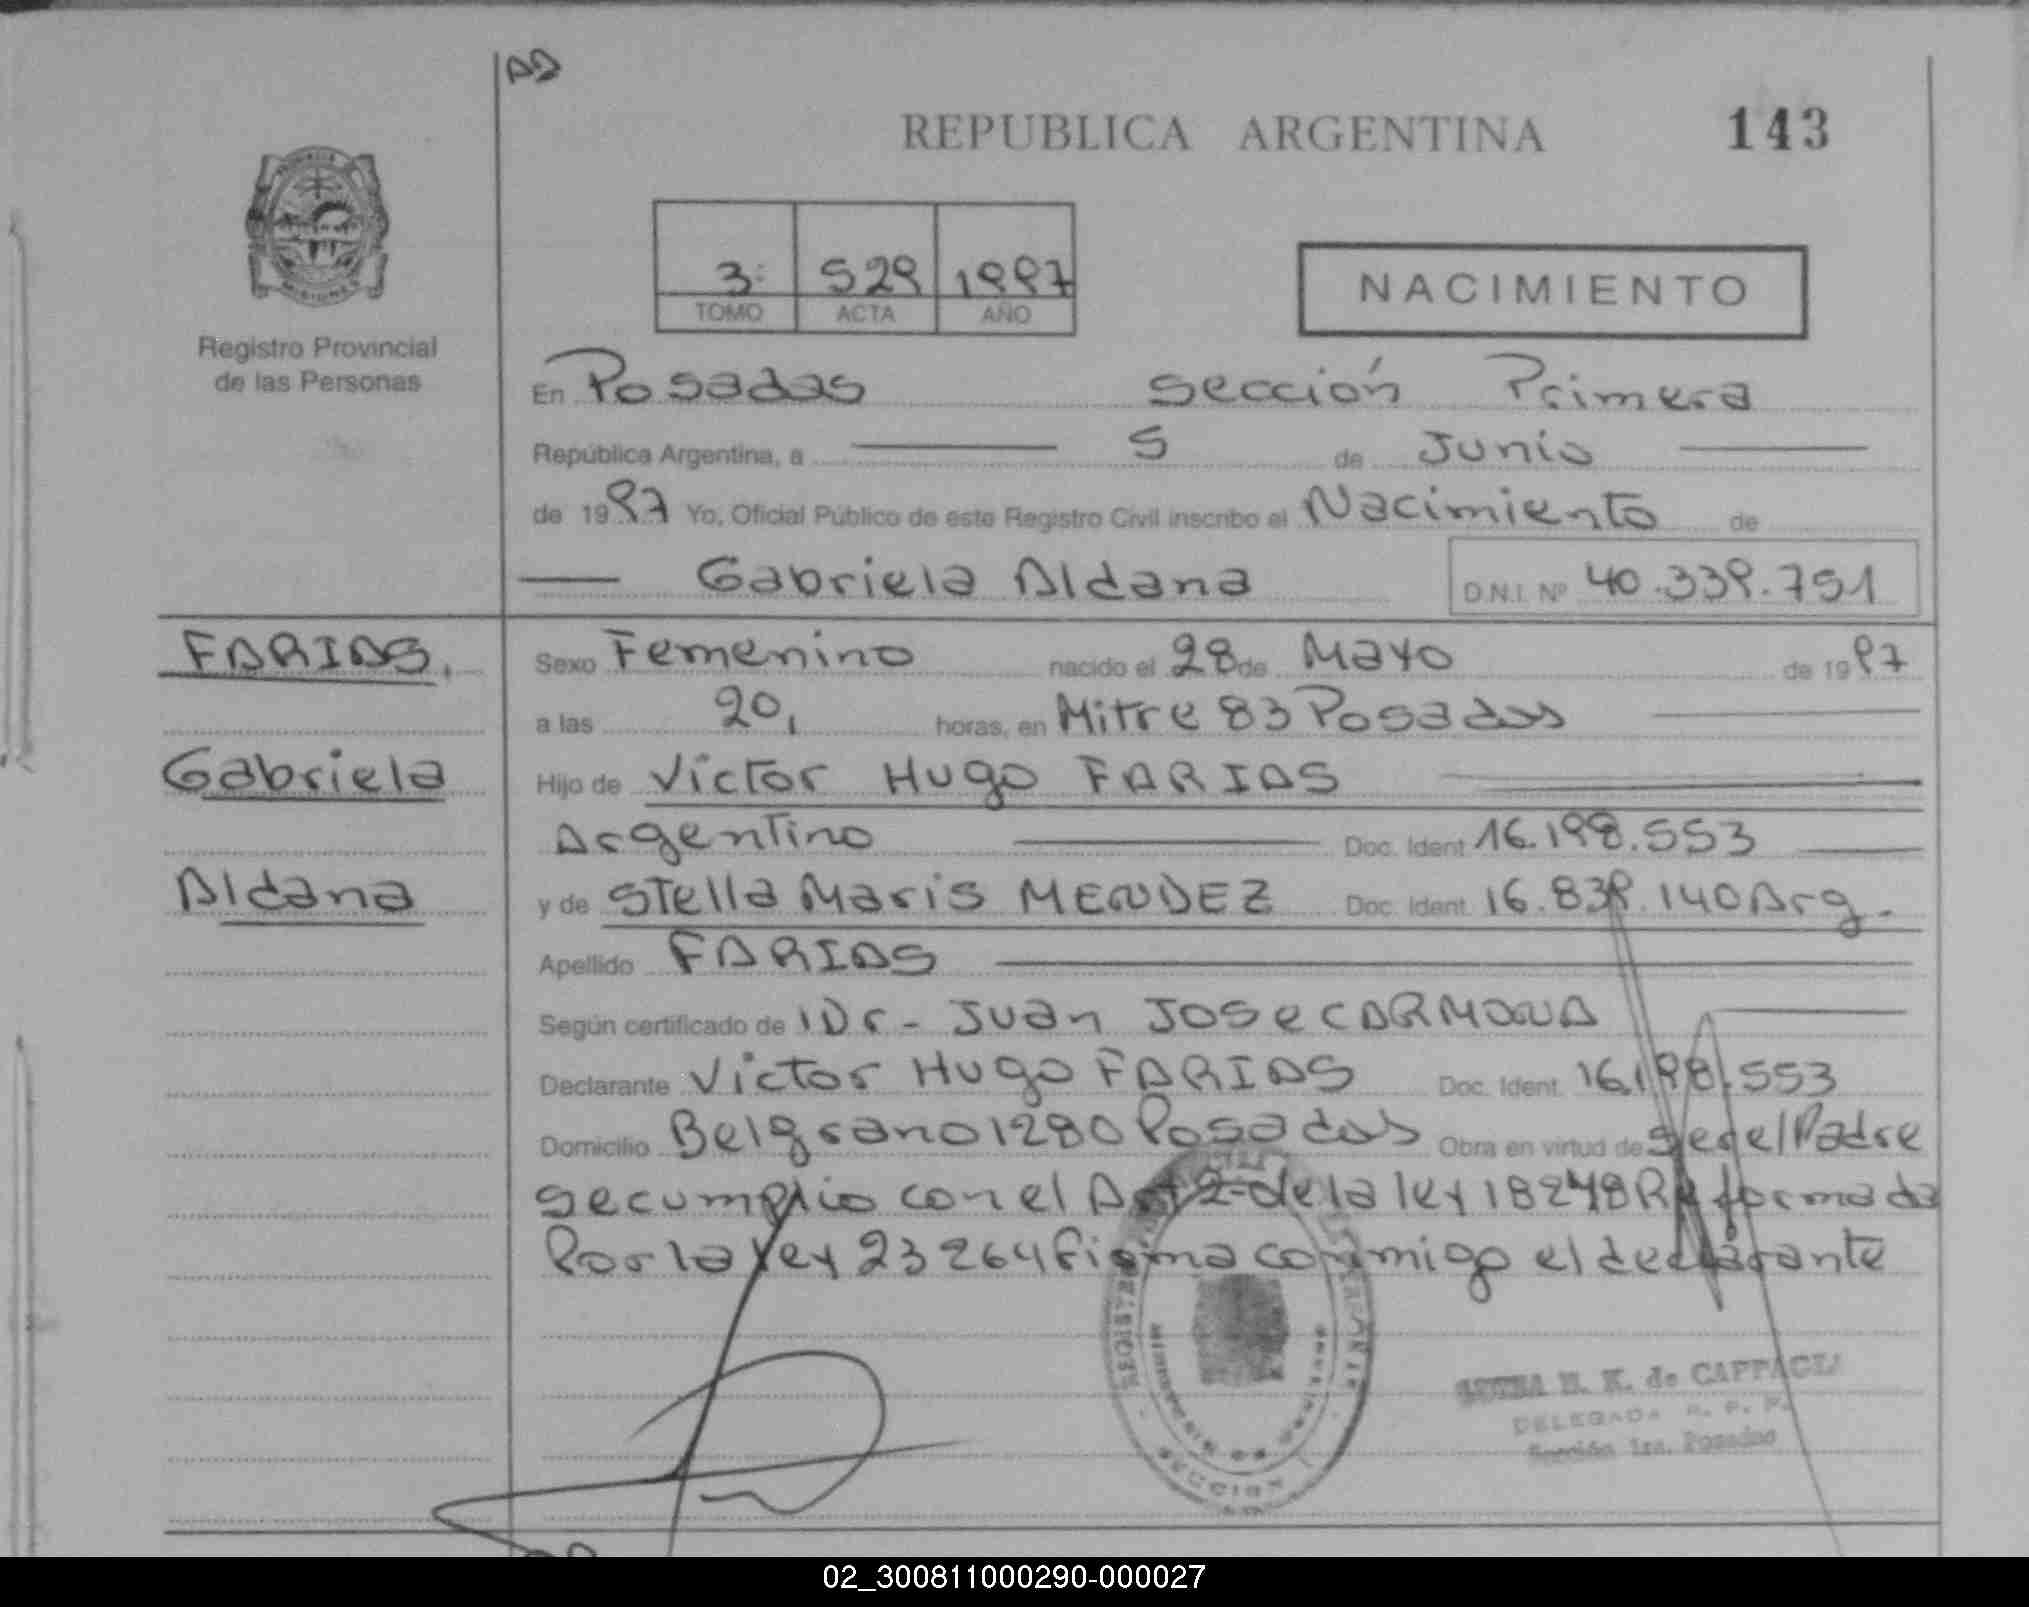 AD
REPUBLICA ARGENTINA 143
MISIONES
3: 529 1997
TOMO ACTA AÑO
NACIMIENTO
Registro Provincial
de las Personas
En Posadas Sección Primera
República Argentina, a 5 de Junio
de 1997 Yo, Oficial Público de este Registro Civil inscribo el Nacimiento de
Gabriela Aldana D.N.I. Nº 40.339.751
FARIAS.
Sexo Femenino nacido el 28 de Mayo de 1997
a las 20, horas, en Mitre 83 Posadas
Gabriela
Hijo de Victor Hugo FARIAS
Argentino Doc. Ident 16.198.553
Aldana
y de Stella Maris MENDEZ Doc. Ident. 16.839.140 Arg.
Apellido FARIAS
Según certificado de Dr- Juan Jose CARMONA
Declarante Victor Hugo FARIAS Doc. Ident. 16.198.553
Domicilio Belgrano 1280 Posadas Obra en virtud de ser el Padre
se cumplio con el Art 2- de la ley 18248 Reformada
Por la ley 23264 firma conmigo el declarante
de CAFFACIA
DELEGADA R. P. P.
Sección 1ra. Posadas
SECCION
02_300811000290-000027